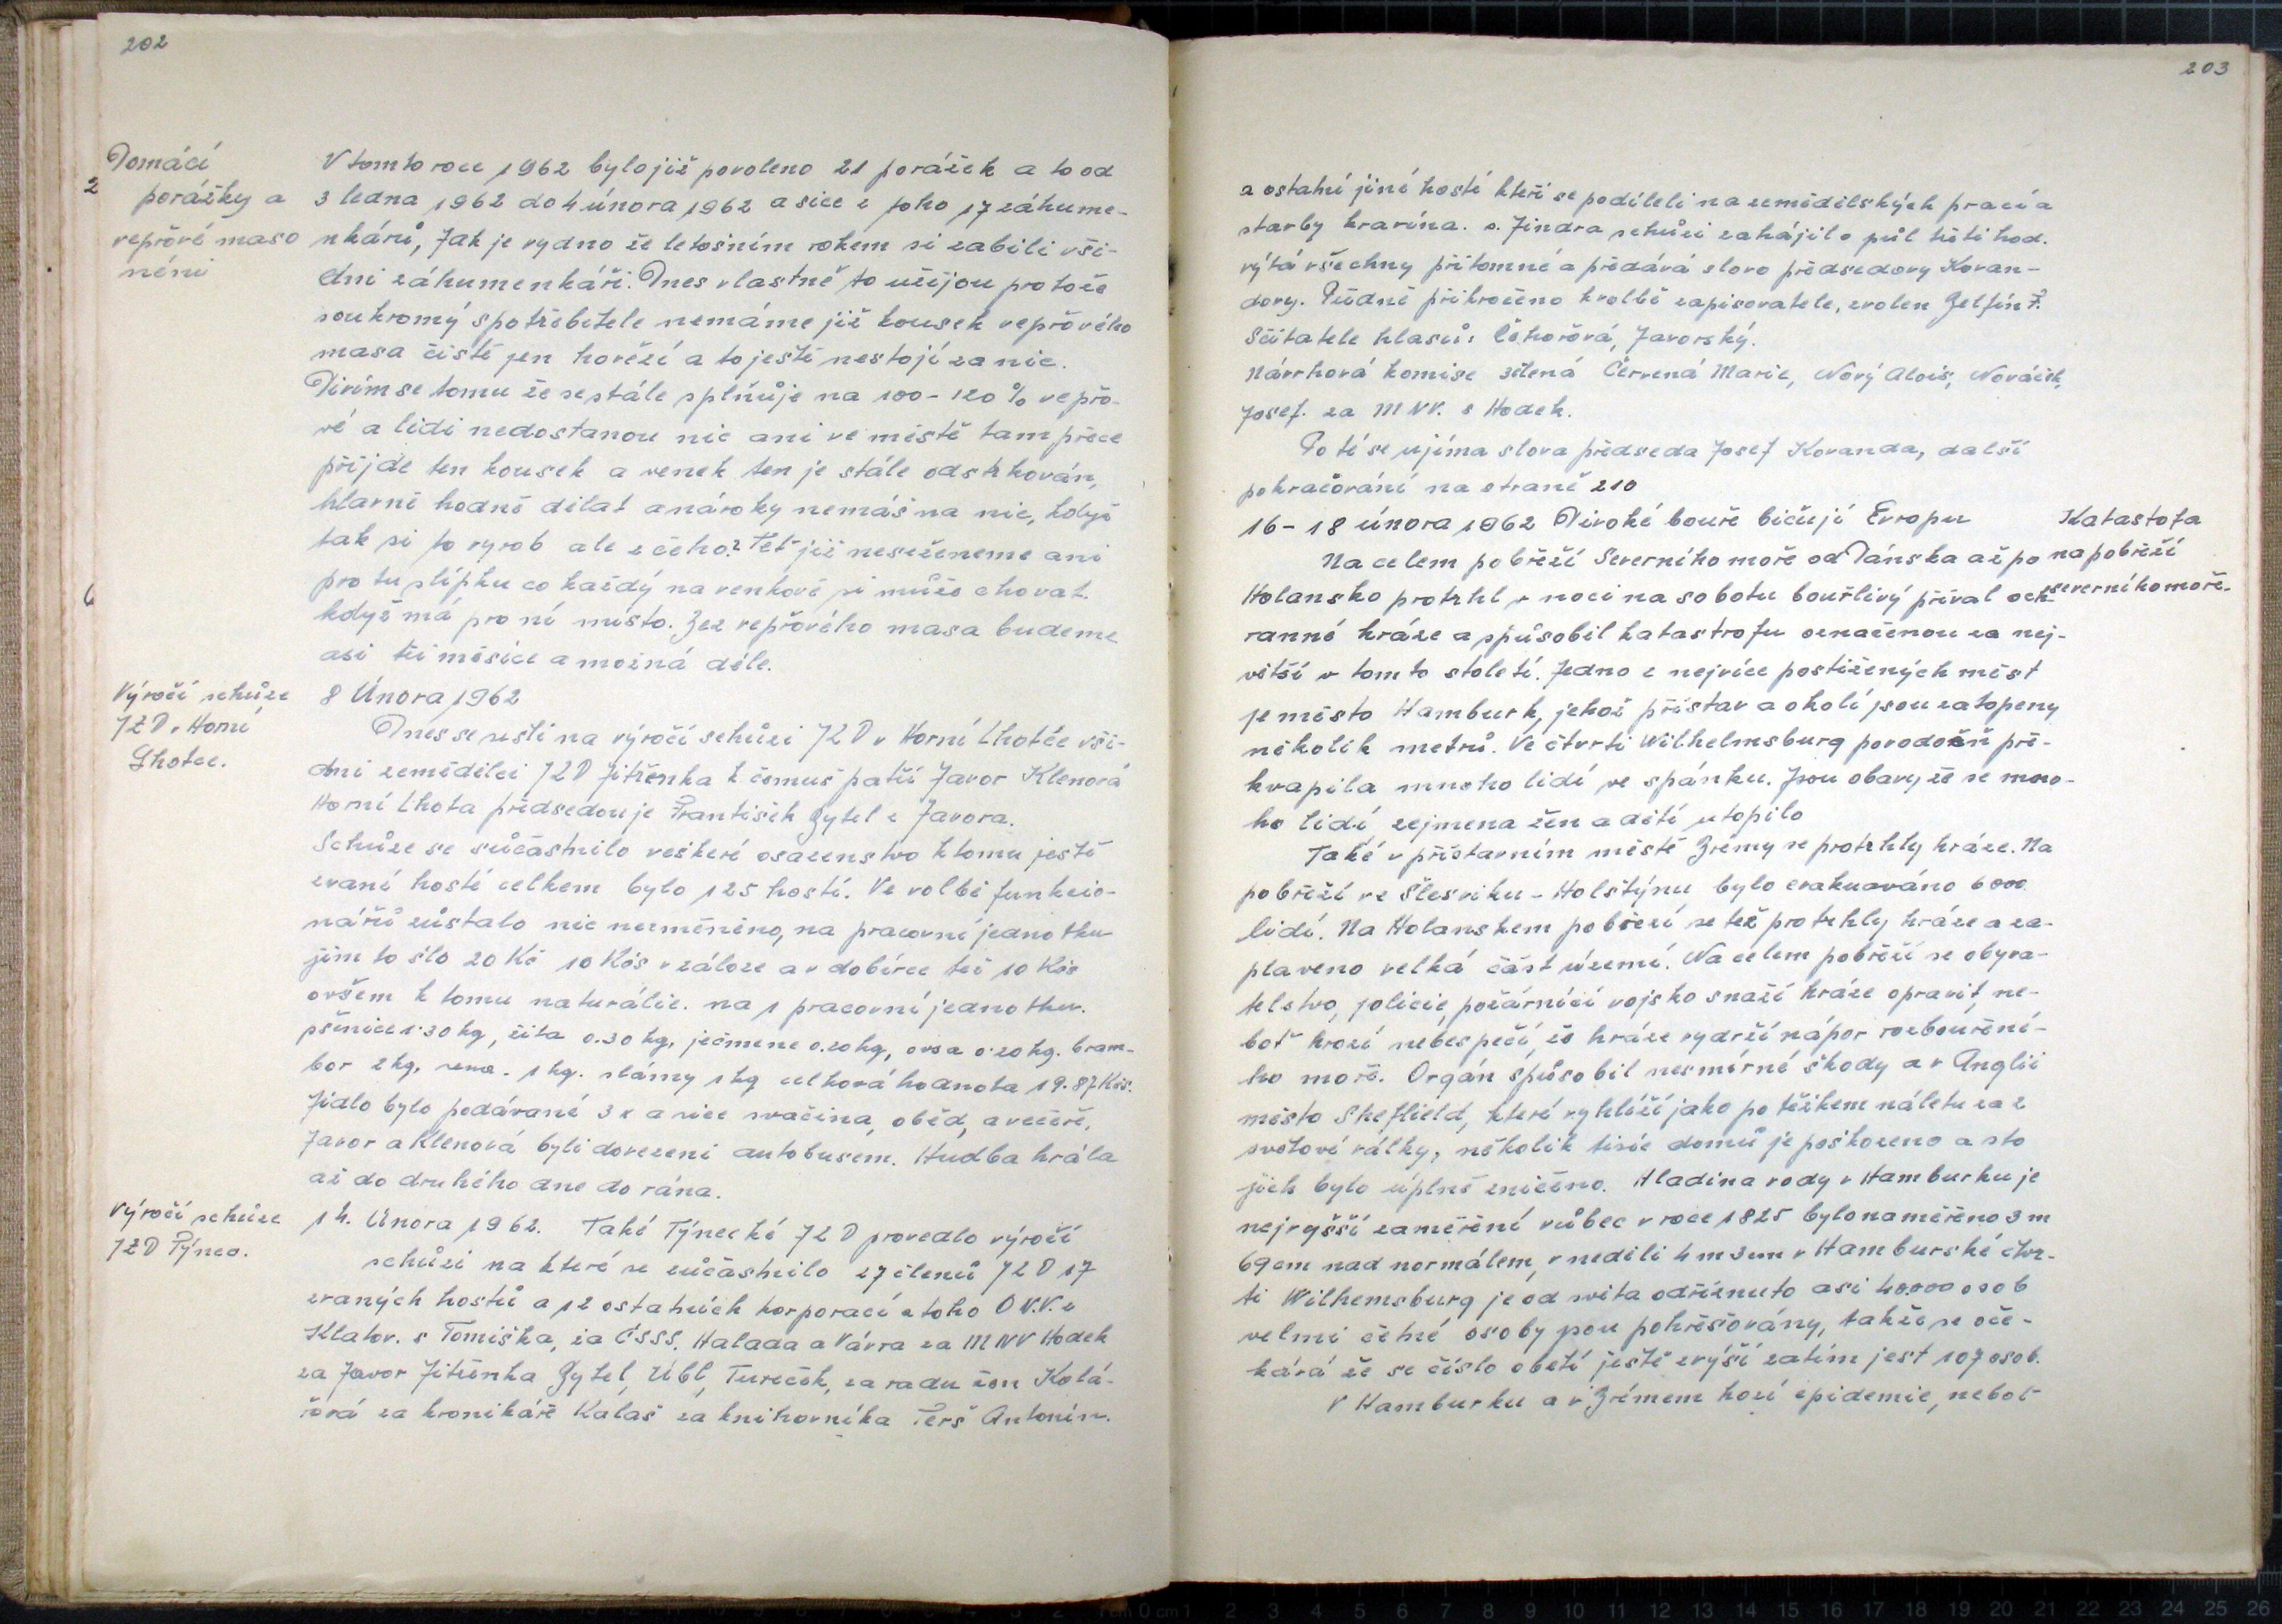 202
Domácí
porážky a
vepřové maso
néni
V tomto roce 1962 bylo již povoleno 21 porážek a to od
3 ledna 1962 do 4 února 1962 a sice z toho 17 záhume-
nkářů, Jak je vydno že letošním rokem si zabili vši-
chni záhumenkáři. Dnes vlastně to užijou protože
soukromý spotřebitele nemáme již kousek vepřového
masa čistě jen hovězí a to ještě nestojí za nic.
Divím se tomu že se stále splňůje na 100 - 120 % vepřo-
vé a lidi nedostanou nic ani ve městě tam přece
přijde ten kousek a venek ten je stále odstrkován,
hlavně hodně dělat a nároky nemáš na nic, když
tak si to vyrob ale z čeho? Teť již neseženeme ani
pro tu slípku co každý na venkově si může chovat.
když má pro ní místo. Bez vepřového masa budeme
asi tři měsíce a možná déle.
Výročí schůze
JZD v Horní
Lhotce.
8 Února 1962
Dnes se sešli na výročí schůzi JZD v Horní Lhotce vši-
chni zemědělci JZD Jitřenka k čemuš patří Javor Klenová
Horní Lhota předsedou je František Zytel z Javora.
Schůze se súčastnilo veškeré osazenstvo k tomu ještě
zvaní hosté celkem bylo 125 hostí. Ve volbě funkcio-
nářů zůstalo nic nezměněno, na pracovní jednotku
jim to šlo 20 Kč 10 Kčs v záloze a v dobírce též 10 Kčs
ovšem k tomu naturálie. na 1 pracovní jednotku.
pšenice 1.30 kg, žita 0.30 kg, ječmene 0.20 kg, ovsa 0.20 kg. bram-
bor 2 kg, sena. 1 kg. slámy 1 kg celková hodnota 19.87 Kčs.
Jídlo bylo podávané 3 x a sice svačina, oběd, a večeře,
Javor a Klenová byli dovezeni autobusem. Hudba hrála
až do druhého dne do rána.
Výročí schůze
JZD Týnec.
14. Února 1962. Také Týnecké JZD provedlo výročí
schůzi na které se zůčastnilo 27 členů JZD 17
zvaných hostů a 12 ostatních korporací z toho O.V.V. z
Klatov. s Tomiška, za ČSSS. Halada a Vávra za MNV Hodek
za Javor Jitřenka Zytel, Übl, Tureček, za radu žen Kolá-
řová za kronikáře Kalaš za knihovníka Terš Antonín.
203
a ostatní jiné hosté kteří se podíleli na zemědělských prací a
stavby kravína. s. Jindra schůzi zahájil o půl třetí hod.
výtá všechny přítomné a předává slovo předsedovy Kovan-
dovy. Řádně přikročeno k volbě zapisovatele, zvolen Zelfín F.
Sčítatele hlasů: Čechořová, Javorský.
Návrhová komise zelená Červená Marie, Nový Alois, Nováček,
Josef. za MNV. s Hodek.
Po té se ujíma slova předseda Josef Kovanda, další
pokračování na straně 210
16 - 18 února 1962 Divoké bouře bičují Evropu
Katastofa
na pobřeží
severního moře.
Na celem pobřeží Severního moře od Dánska až po
Holansko protrhl v noci na sobotu bouřlivý příval och-
ranné hráze a spůsobil katastrofu označenou za nej-
větší v tomto století. Jedno z nejvíce postižených měst
je město Hamburk, jehož přístav a okolí jsou zatopeny
několik metrů. Ve čtvrti Wilhelmsburg povodeň pře-
kvapila mnoho lidí ve spánku. Jsou obavy že se mno-
ho lidí, zejmena žen a dětí utopilo
Také v přístavním městě Brémy se protrhly hráze. Na
pobřeží ve Šlesviku - Holštýnu bylo evakuováno 6000
lidí. Na Holanskem pobřezí se též protrhly hráze a za-
plaveno velká část území. Na celem pobřeží se obyva-
telstvo, policie, požárníci vojsko snaží hráze opravit, ne-
boť hrozí nebespečí, že hráze vydrží nápor rozbouření-
ho moře. Orgán spůsobil nesmírné škody a v Anglii
město Sheflield, které vyhlíží jako po těžkem náletu za 2
světové války, několik tisíc domů je poškozeno a sto
jich bylo úplně zničeno. Hladina vody v Hamburku je
nejvyšší zaměření vůbec v roce 1825 bylo naměřeno 3 m
69 cm nad normálem, v neděli 4 m 3 cm v Hamburské čtvr-
ti Wilhemsburg je od světa odříznuto asi 40.000 osob
velmi četné osoby jsou pohřešovány, takže se oče-
kává že se číslo obětí ještě zvýší zatím jest 107 osob.
V Hamburku a v Brémem hozí epidemie, neboť